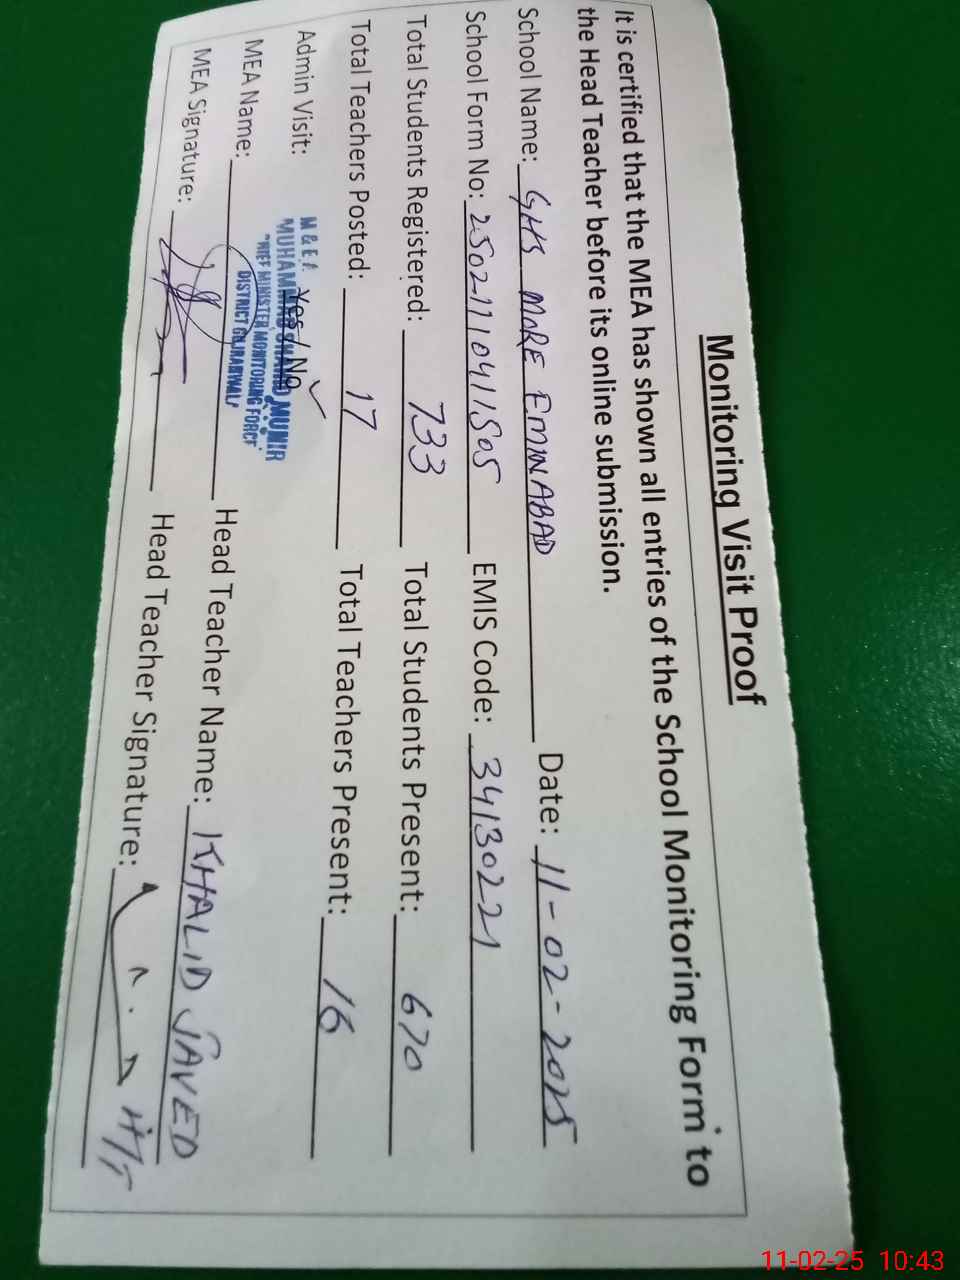 Monitoring Visit Proof
It is certified that the MEA has shown all entries of the School Monitoring Form to
the Head Teacher before its online submission.
School Name: GHS MORE EMINABAD Date: 11-02-2025
School Form No: 250211041505 EMIS Code: 34130221
Total Students Registered: 733 Total Students Present: 670
Total Teachers Posted: 17 Total Teachers Present: 16
Admin Visit: Yes / No ✓
M & E A
MUHAMMAD MUNIR
CHIEF MINISTER MONITORING FORCE
DISTRICT GUJRANWALA
MEA Name: Head Teacher Name: KHALID JAVED
MEA Signature: Head Teacher Signature:
11-02-25 10:43